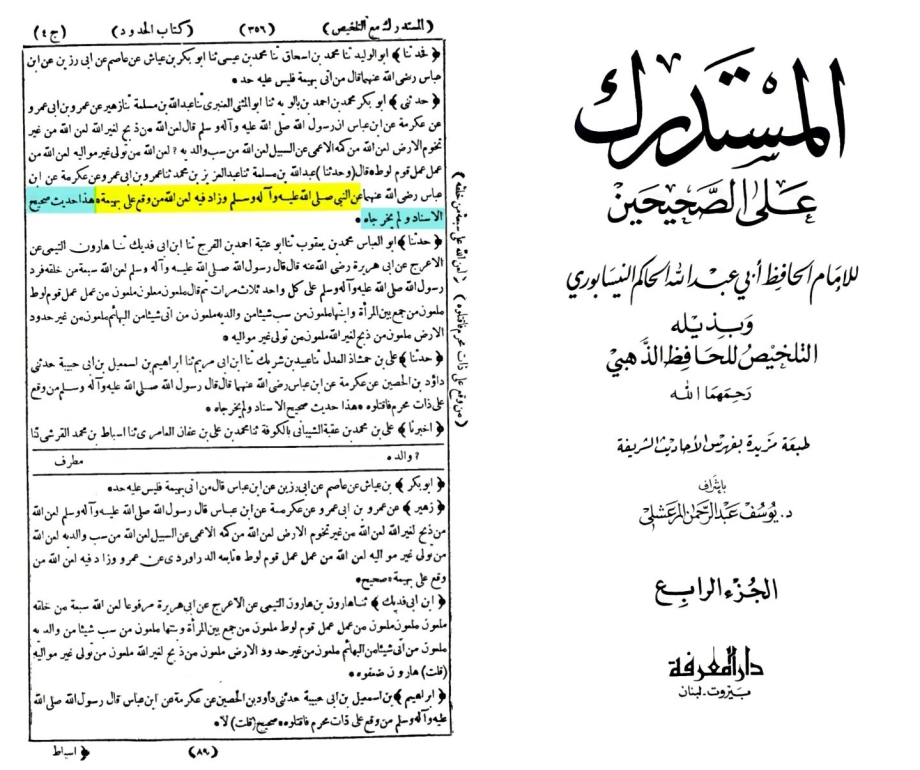 (المستدرك مع التلخيص) (٣٥٦) (كتاب الحدود) (ج٤)
﴿ فحدثنا ﴾ ابو الوليد ثنا محمد بن اسحاق ثنا محمد بن عيسى ثنا ابو بكر بن عياش عن عاصم عن ابى رزين عن ابن
عباس رضى الله عنهما قال من اتى بهيمة فليس عليه حد ٭
﴿ حدثنى ﴾ ابو بكر محمد بن احمد بن بالويه ثنا ابو المثنى العنبرى ثنا عبدالله بن مسلمة ثنا زهير عن عمرو بن ابى عمرو
عن عكرمة عن ابن عباس ان رسول الله صلى الله عليه وآله وسلم قال لعن الله من ذبح لغير الله لعن الله من غير
تخوم الارض لعن الله من كمه الاعمى عن السبيل لعن الله من سب والديه ? لعن الله من تولى غير مواليه لعن الله من
عمل عمل قوم لوط ٭ قال (وحدثنا) عبدالله بن مسلمة ثنا عبدالعزيز بن محمد ثنا عمرو بن ابى عمرو عن عكرمة عن ابن
عباس رضى الله عنهما عن النبى صلى الله عليه وآله وسلم وزاد فيه لعن الله من وقع على بهيمة ٭ هذا حديث صحيح
الاسناد ولم يخرجاه ٭
﴿ حدثنا ﴾ ابو العباس محمد بن يعقوب ثنا ابو عتبة احمد بن الفرج ثنا ابن ابى فديك ثنا هارون التيمى عن
الاعرج عن ابى هريرة رضى الله عنه قال قال رسول الله صلى الله عليه وآله وسلم لعن الله سبعة من خلقه فرد
رسول الله صلى الله عليه وآله وسلم على كل واحد ثلاث مرات ثم قال ملعون ملعون ملعون من عمل عمل قوم لوط
ملعون من جمع بين المرأة وابنتها ملعون من سب شيئا من والديه ملعون من اتى شيئا من البهائم ملعون من غير حدود
الارض ملعون من ذبح لغير الله ملعون من تولى غير مواليه ٭
﴿ حدثنا ﴾ على بن حمشاذ العدل ثنا عبيد بن شريك ثنا ابن ابى مريم ثنا ابراهيم بن اسمعيل بن ابى حبيبة حدثنى
داؤد بن الحصين عن عكرمة عن ابن عباس رضى الله عنهما قال قال رسول الله صلى الله عليه وآله وسلم من وقع
على ذات محرم فاقتلوه ٭ هذا حديث صحيح الاسناد ولم يخرجاه ٭
﴿ اخبرنا ﴾ على بن محمد بن عقبة الشيبانى بالكوفة ثنا محمد بن على بن عفان العامرى ثنا اسباط بن محمد القرشى ثنا
? والده ٭ مطرف
﴿ ابو بكر ﴾ بن عياش عن عاصم عن ابى رزين عن ابن عباس قال من اتى بهيمة فليس عليه حد ٭
﴿ زهير ﴾ عن عمرو بن ابى عمرو عن عكرمة عن ابن عباس قال رسول الله صلى الله عليه وآله وسلم لعن الله
من ذبح لغير الله لعن الله من غير تخوم الارض لعن الله من كمه الاعمى عن السبيل لعن الله من سب والديه لعن الله
من تولى غير مواليه لعن الله من عمل عمل قوم لوط ٭ تابعه الدراوردى عن عمرو وزاد فيه لعن الله من
وقع على بهيمة ٭ صحيح ٭
﴿ ابن ابى فديك ﴾ ثنا هارون بن هارون التيمى عن الاعرج عن ابى هريرة مرفوعا لعن الله سبعة من خلقه
ملعون ملعون ملعون من عمل عمل قوم لوط ملعون من جمع بين المرأة وبنتها ملعون من سب شيئا من والديه
ملعون من اتى شيئا من البهائم ملعون من غير حدود الارض ملعون من ذبح لغير الله ملعون من تولى غير مواليه
(قلت) هارون ضعفوه ٭
﴿ ابراهيم ﴾ بن اسمعيل بن ابى حبيبة حدثنى داود بن الحصين عن عكرمة عن ابن عباس قال رسول الله صلى الله
عليه وآله وسلم من وقع على ذات محرم فاقتلوه ٭ صحيح (قلت) لا ٭
(٨٩) ﴿ اسباط
(لعن الله على سبعة من خلقه)
(من وقع على ذات محرم فاقتلوه)
المستدرك
على الصحيحين
للإمام الحافظ أبي عبد الله الحاكم النيسابوري
وبذيله
التلخيص للحافظ الذهبي
رحمهما الله
طبعة مزيدة بفهرس الأحاديث الشريفة
بإشراف
د. يوسف عبد الرحمن المرعشلي
الجزء الرابع
دار المعرفة
بيروت - لبنان